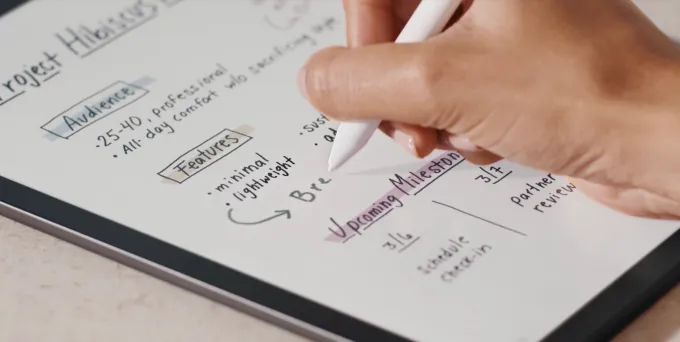 Project Hibiscus
Audience
• 25-40, professional
• All-day comfort w/o sacrificing style
Features
• minimal
• lightweight
Bre
Upcoming Milestones
3/6
schedule
check-in
3/7
partner
review